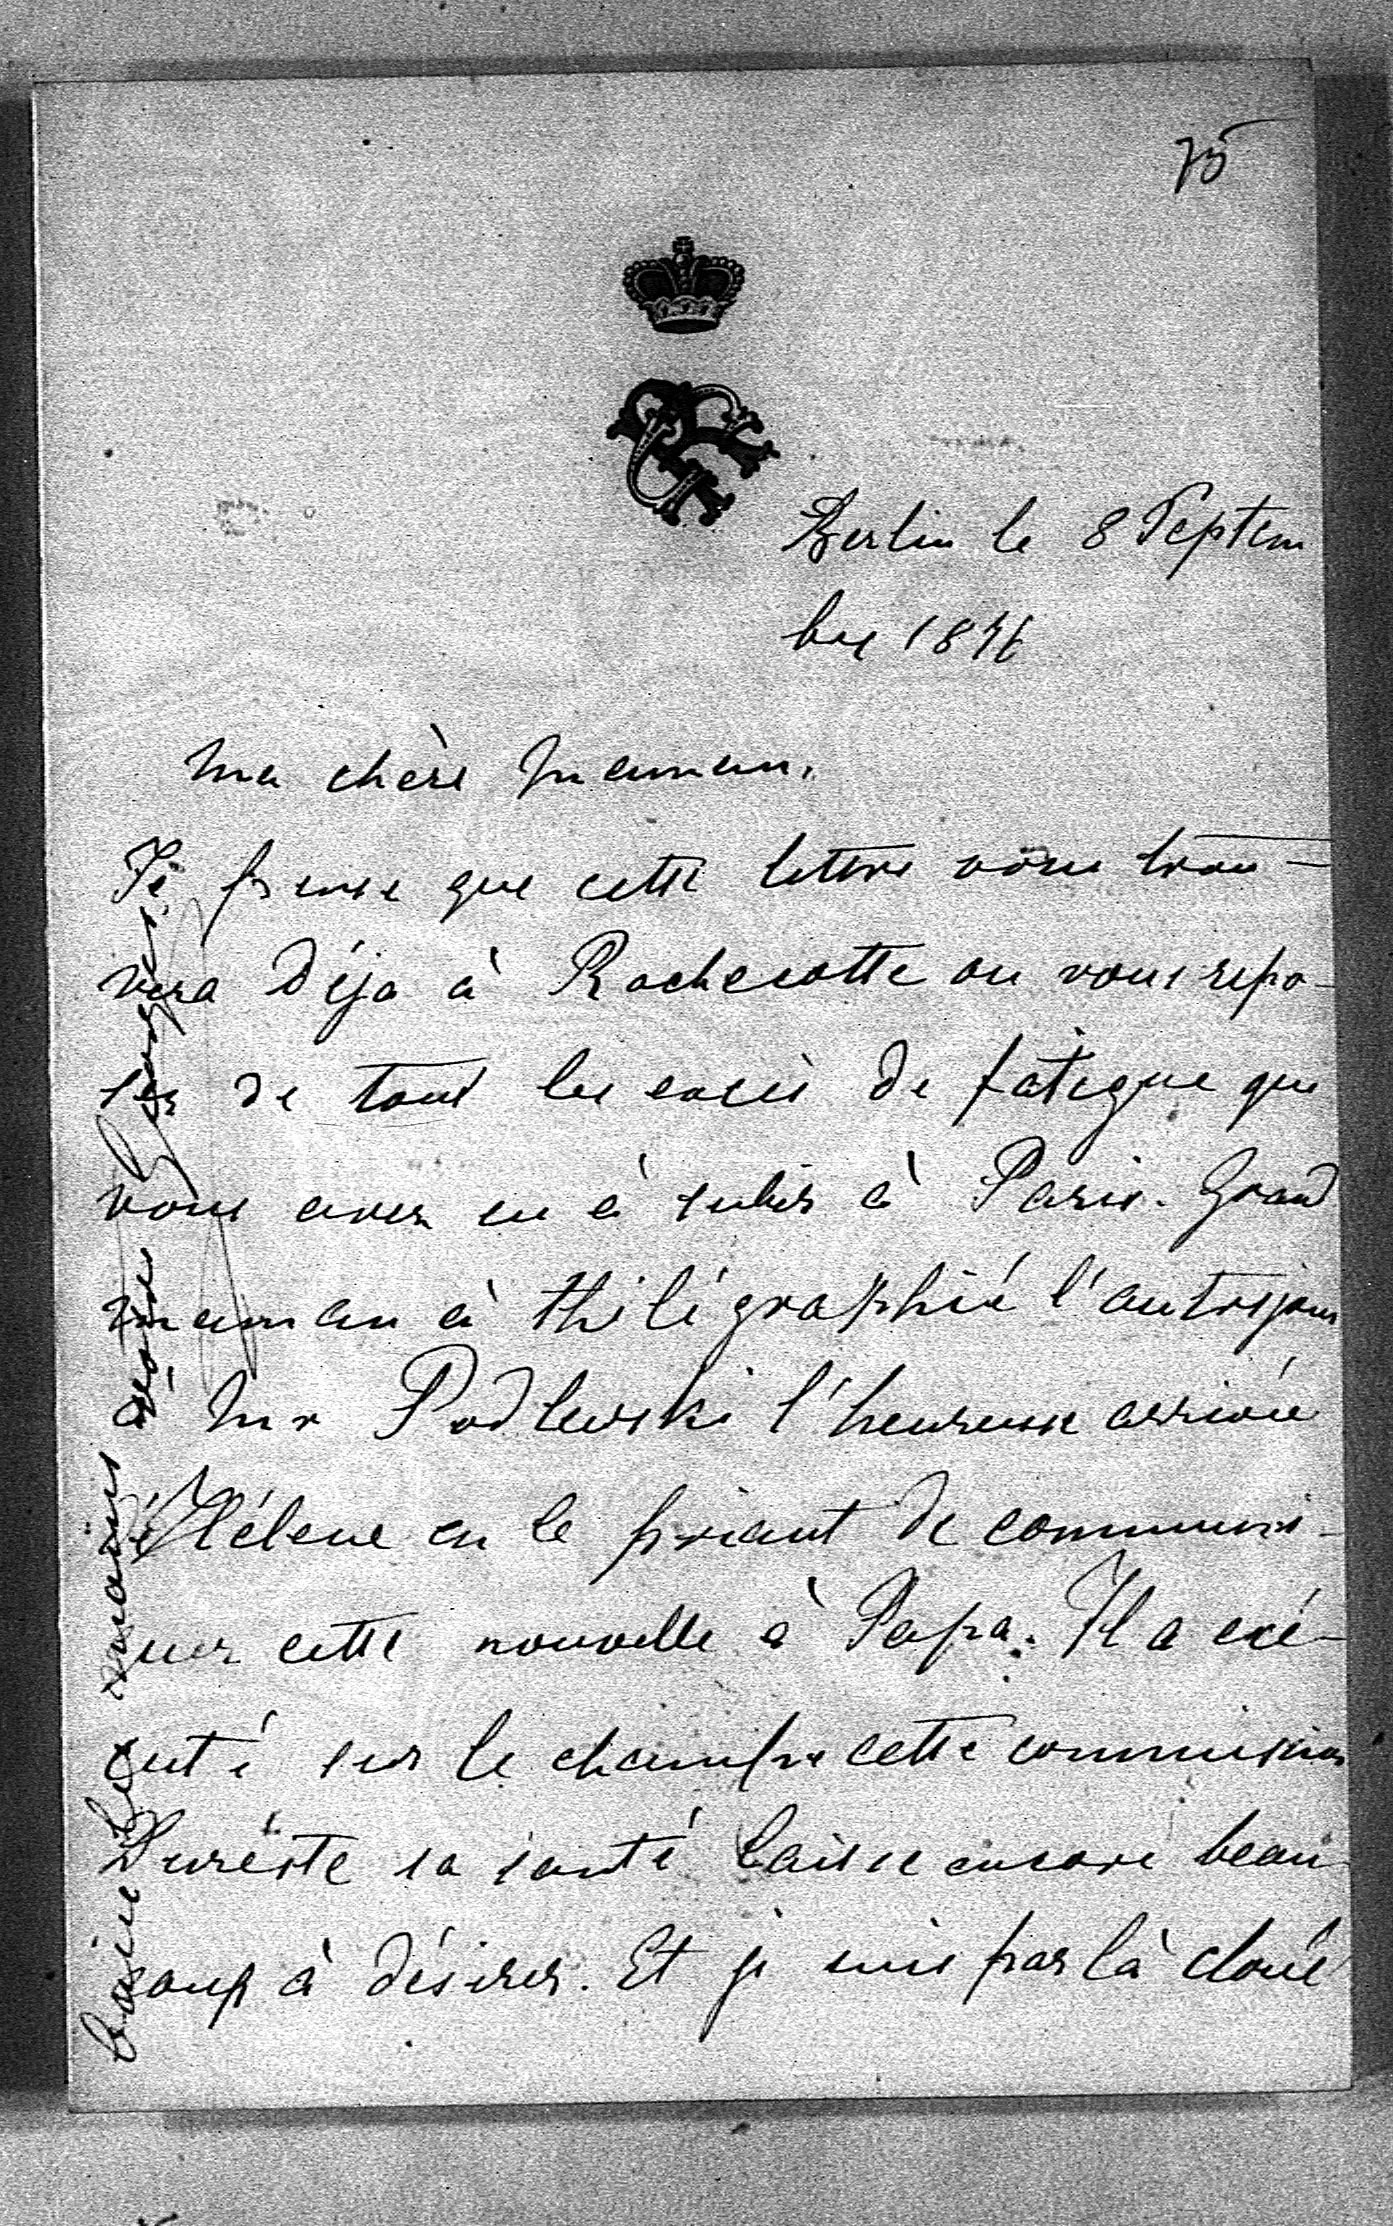 75
Berlin le 8 Septem
bre 1876
Ma chère Maman.
Je pense que cette lettre vous trou-
vera déja à Rochecotte ou vous repo-
sez de tout les excès de fatigue que
vous avez eu à subir à Paris. Grand
maman à thélégraphié l'autre jour
à Mr Podlewski l'heureuse arrivée
d'Hélene en le priant de communi-
quer cette nouvelle à Papa. Il a exé-
cuté sur le champe cette commission
Dureste sa santé laisse encore beau
coup à désirer. Et je suis par là cloué
baise les mains
Georges.